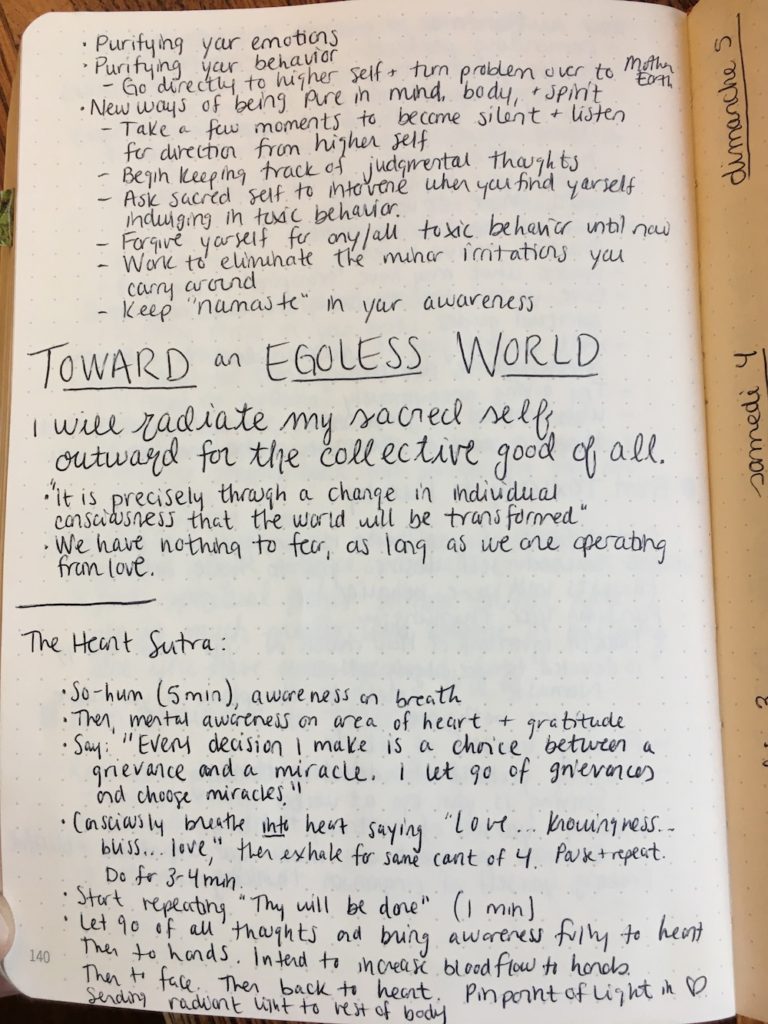 · Purifying your emotions
· Purifying your behavior
- Go directly to higher self + turn problem over to Mother Earth
· New ways of being pure in mind, body, + spirit
- Take a few moments to become silent + listen
for direction from higher self
- Begin keeping track of judgmental thoughts
- Ask sacred self to intervene when you find yourself
indulging in toxic behavior.
- Forgive yourself for any/all toxic behavior until now
- Work to eliminate the minor irritations you
carry around
- Keep "namaste" in your awareness
TOWARD an EGOLESS WORLD
I will radiate my sacred self
outward for the collective good of all.
· "It is precisely through a change in individual
consciousness that the world will be transformed"
· We have nothing to fear, as long as we are operating
from love.
The Heart Sutra:
· So-hum (5 min), awareness on breath
· Then, mental awareness on area of heart + gratitude
· Say: "Every decision I make is a choice between a
grievance and a miracle. I let go of grievances
and choose miracles."
· Consciously breathe into heart saying "Love... knowingness...
bliss... love," then exhale for same count of 4. Pause + repeat.
Do for 3-4 min.
· Start repeating "Thy will be done" (1 min)
· Let go of all thoughts and bring awareness fully to heart
Then to hands. Intend to increase blood flow to hands.
Then to face. Then back to heart. Pinpoint of Light in ♡
Sending radiant light to rest of body
140
dimanche 5
samedi 4